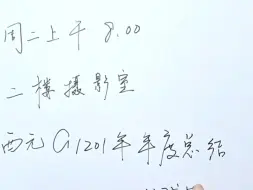 周二上午 8.00
二楼摄影室
西元G1201年年度总结